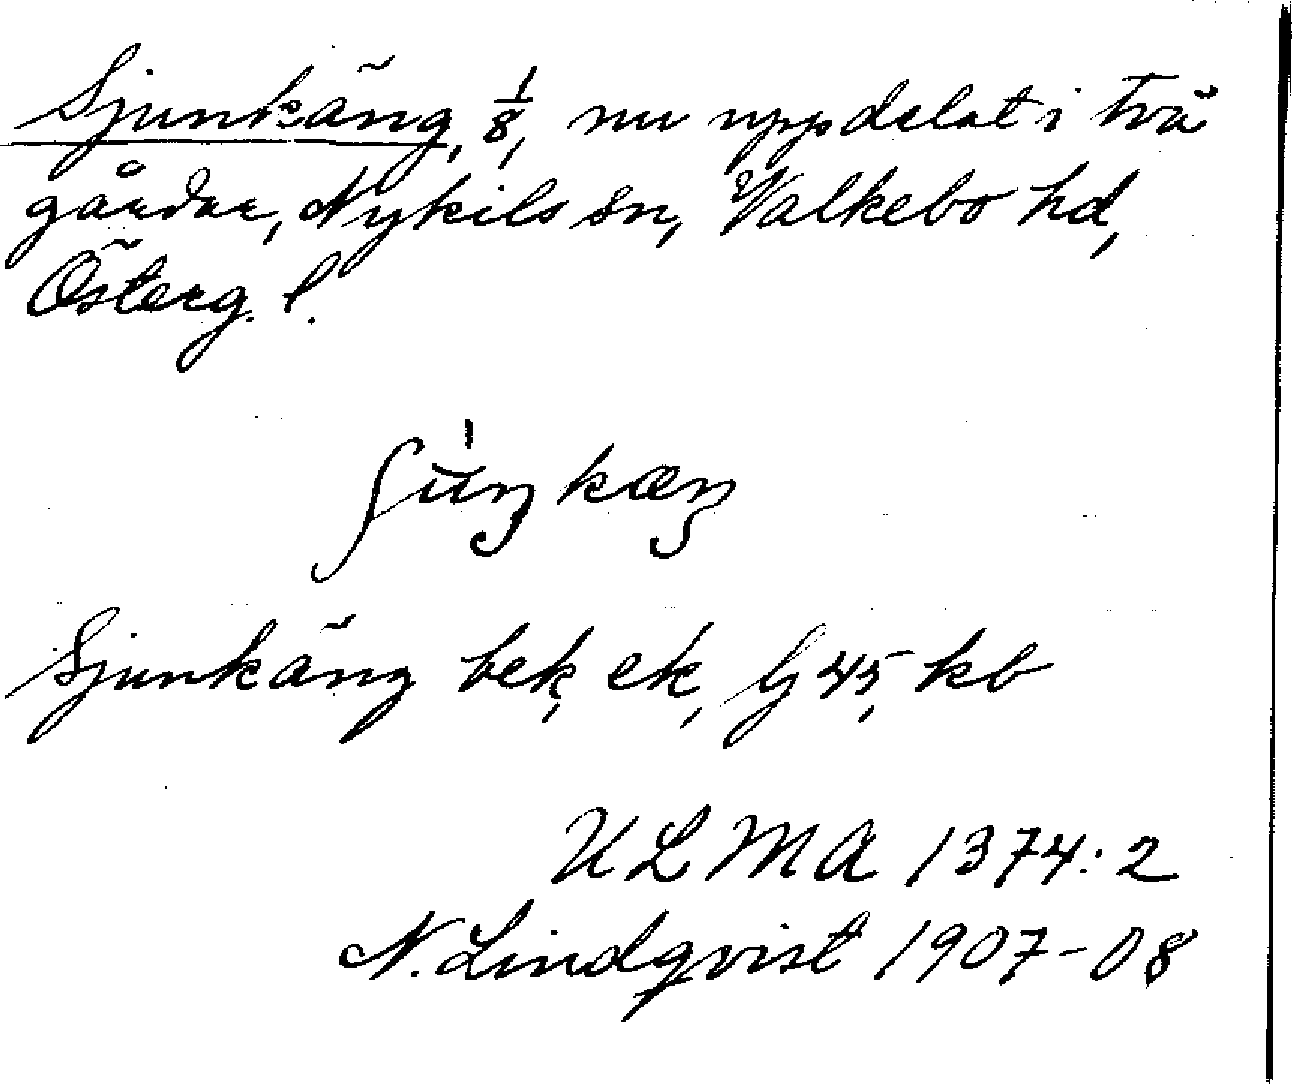 Sjunkäng, 1/8, nu uppdelat i två
gårdar, Nykils sn, Valkebo hd,
Österg. l.
ʃùŋkæŋ
Sjunkäng bek, ek, G 45, kb
ULMA 1374:2
N. Lindqvist 1907-08